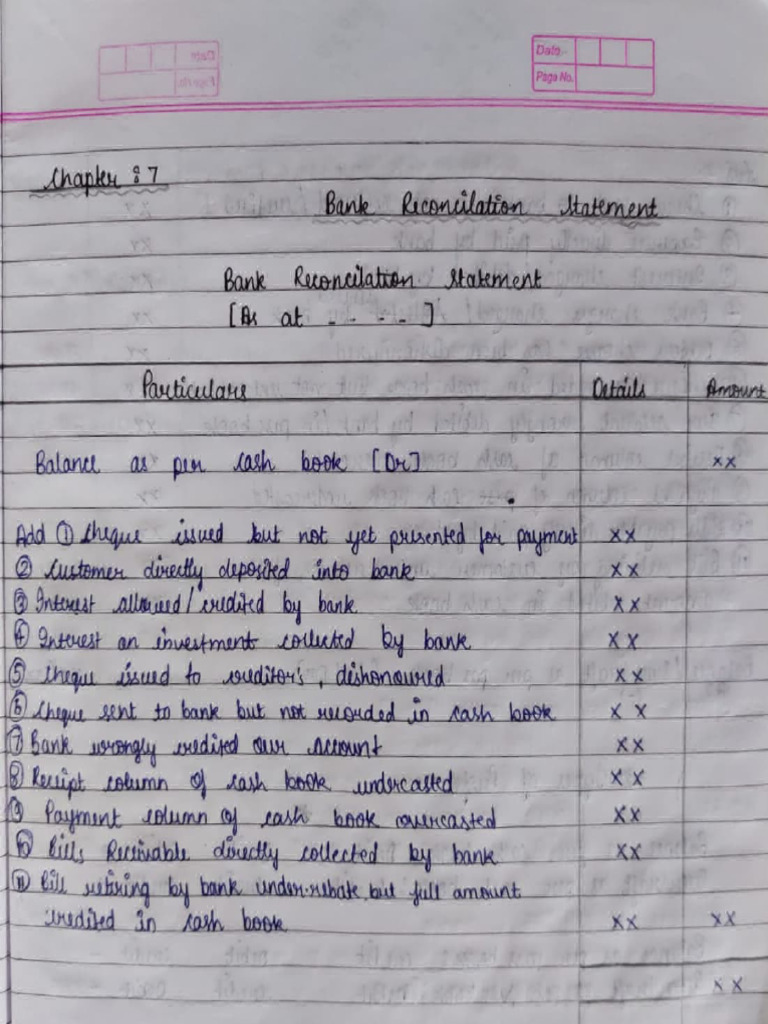 Date:-
Page No.
Chapter : 7
Bank Reconcilation Statement
Bank Reconcilation Statement
[As at - - - - ]
Particulars Details Amount
Balance as per cash book [Dr] xx
Add ① Cheque issued but not yet presented for payment xx
② Customer directly deposited into bank xx
③ Interest allowed/credited by bank xx
④ Interest an investment collected by bank xx
⑤ Cheque issued to creditor's, dishonoured xx
⑥ Cheque sent to bank but not recorded in cash book x x
⑦ Bank wrongly credited our account xx
⑧ Receipt column of cash book undercasted xx
⑨ Payment column of cash book overcasted xx
⑩ Bills Receivable directly collected by bank xx
⑪ Bill retiring by bank under rebate, but full amount
credited in cash book xx xx
xx